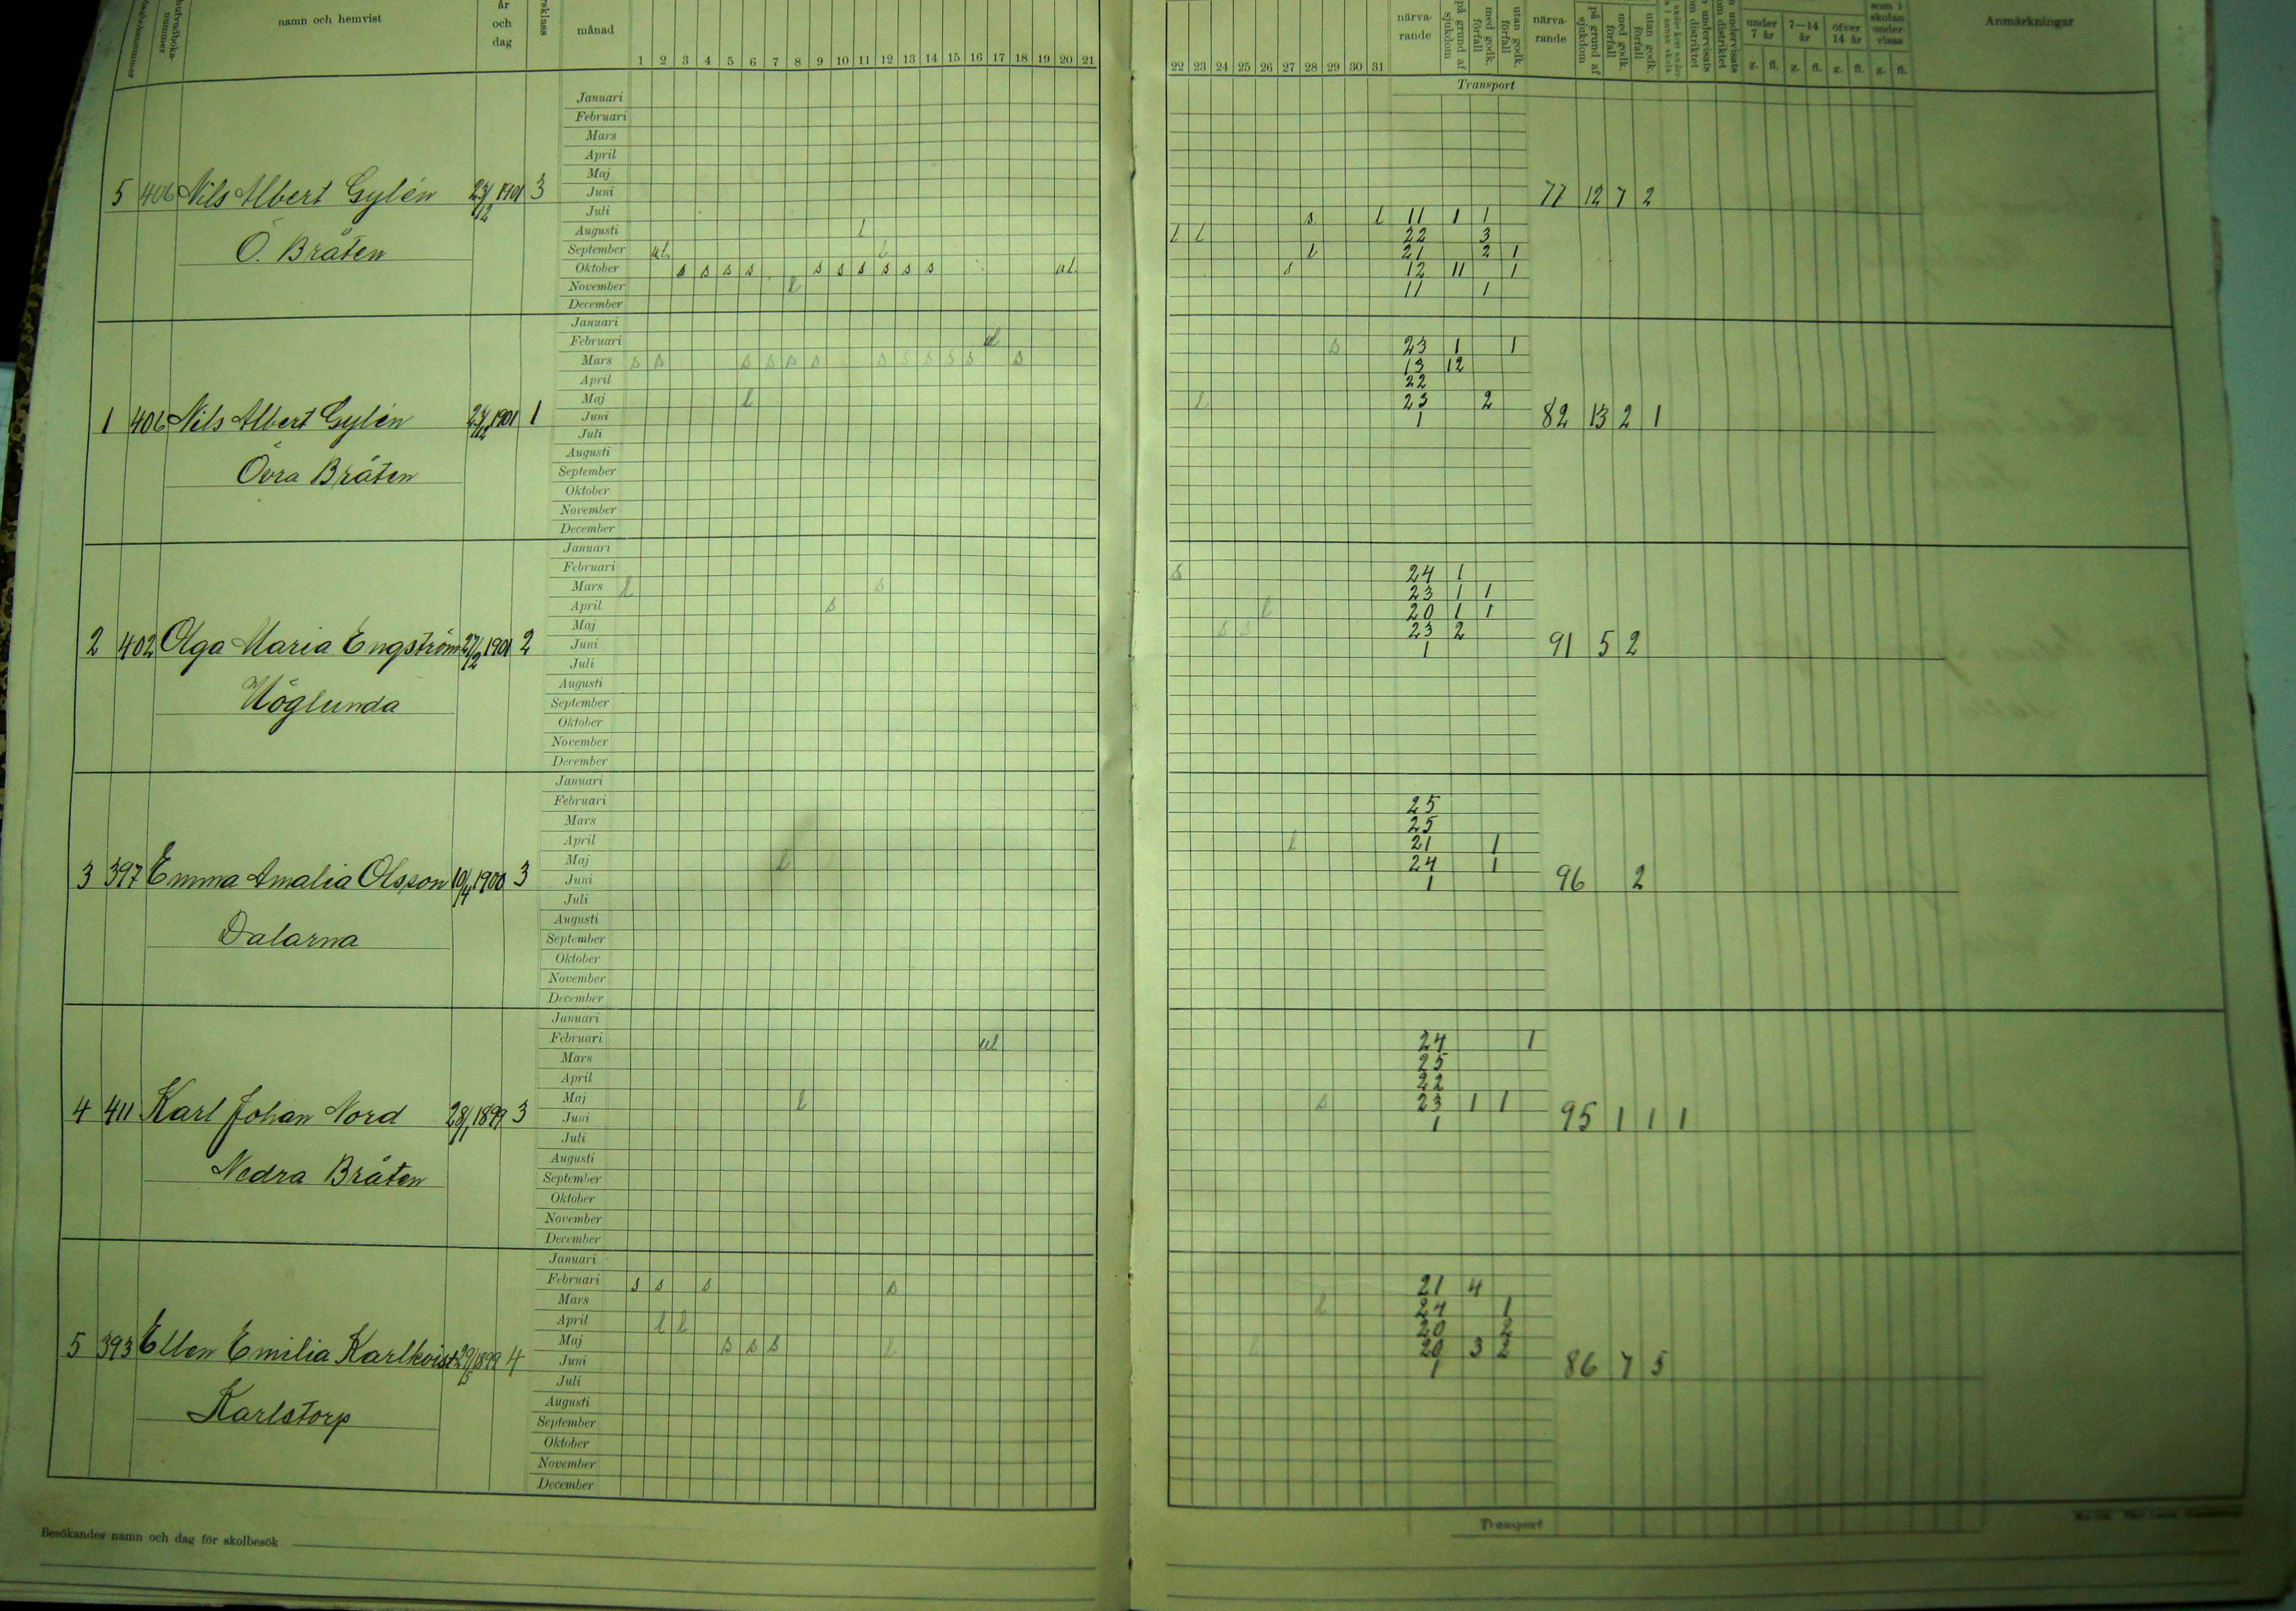 namn och hemvist
år
och
dag
månad
1 2 3 4 5 6 7 8 9 10 11 12 13 14 15 16 17 18 19 20 21
22 23 24 25 26 27 28 29 30 31
närva-
rande
på grund af
sjukdom
med godk.
förfall
utan godk.
förfall
närva-
rande
på grund af
sjukdom
med godk.
förfall
utan godk.
förfall
under
7 år
7—14
år
öfver
14 år
som i
skolan
under-
visas
g. fl. g. fl. g. fl. g. fl.
Anmärkningar
Transport
Januari
Februari
Mars
April
Maj
5 406 Nils Albert Gylén 23/12 1901 3 Juni 77 12 7 2
Juli
s l 11 1 1
Augusti l l l 22 3
Ö. Bråten
September ul l l 21 2 1
Oktober s s s s s s s s s s ul s 12 11 1
November l 11 1
December
Januari
Februari ul s 23 1 1
Mars s s s s s s s s s s s s 13 12
April 22
Maj l l 23 2
1 406 Nils Albert Gylén 23/12 1901 1 Juni 1 82 13 2 1
Juli
Augusti
Övra Bråten
September
Oktober
November
December
Januari
Februari s 24 1
Mars l s 23 1 1
April s l 20 1 1
Maj s s 23 2
2 402 Olga Maria Engström 27/2 1901 2 Juni 1 91 5 2
Juli
Augusti
Höglunda
September
Oktober
November
December
Januari
Februari 25
Mars 25
April l 21 1
Maj l 24 1
3 397 Emma Amalia Olsson 10/4 1900 3 Juni 1 96 2
Juli
Augusti
Dalarna
September
Oktober
November
December
Januari
Februari ul 24 1
Mars 25
April 22
Maj l s 23 1 1
4 411 Karl Johan Nord 28/1 1899 3 Juni 1 95 1 1 1
Juli
Augusti
Nedra Bråten
September
Oktober
November
December
Januari
Februari s s s s 21 4
Mars l 24 1
April l l 20 2
Maj s s s l 20 3 2
5 393 Ellen Emilia Karlkvist 1899 4 Juni 1 86 7 5
Juli
Augusti
Karlstorp
September
Oktober
November
December
Transport
Besökandes namn och dag för skolbesök